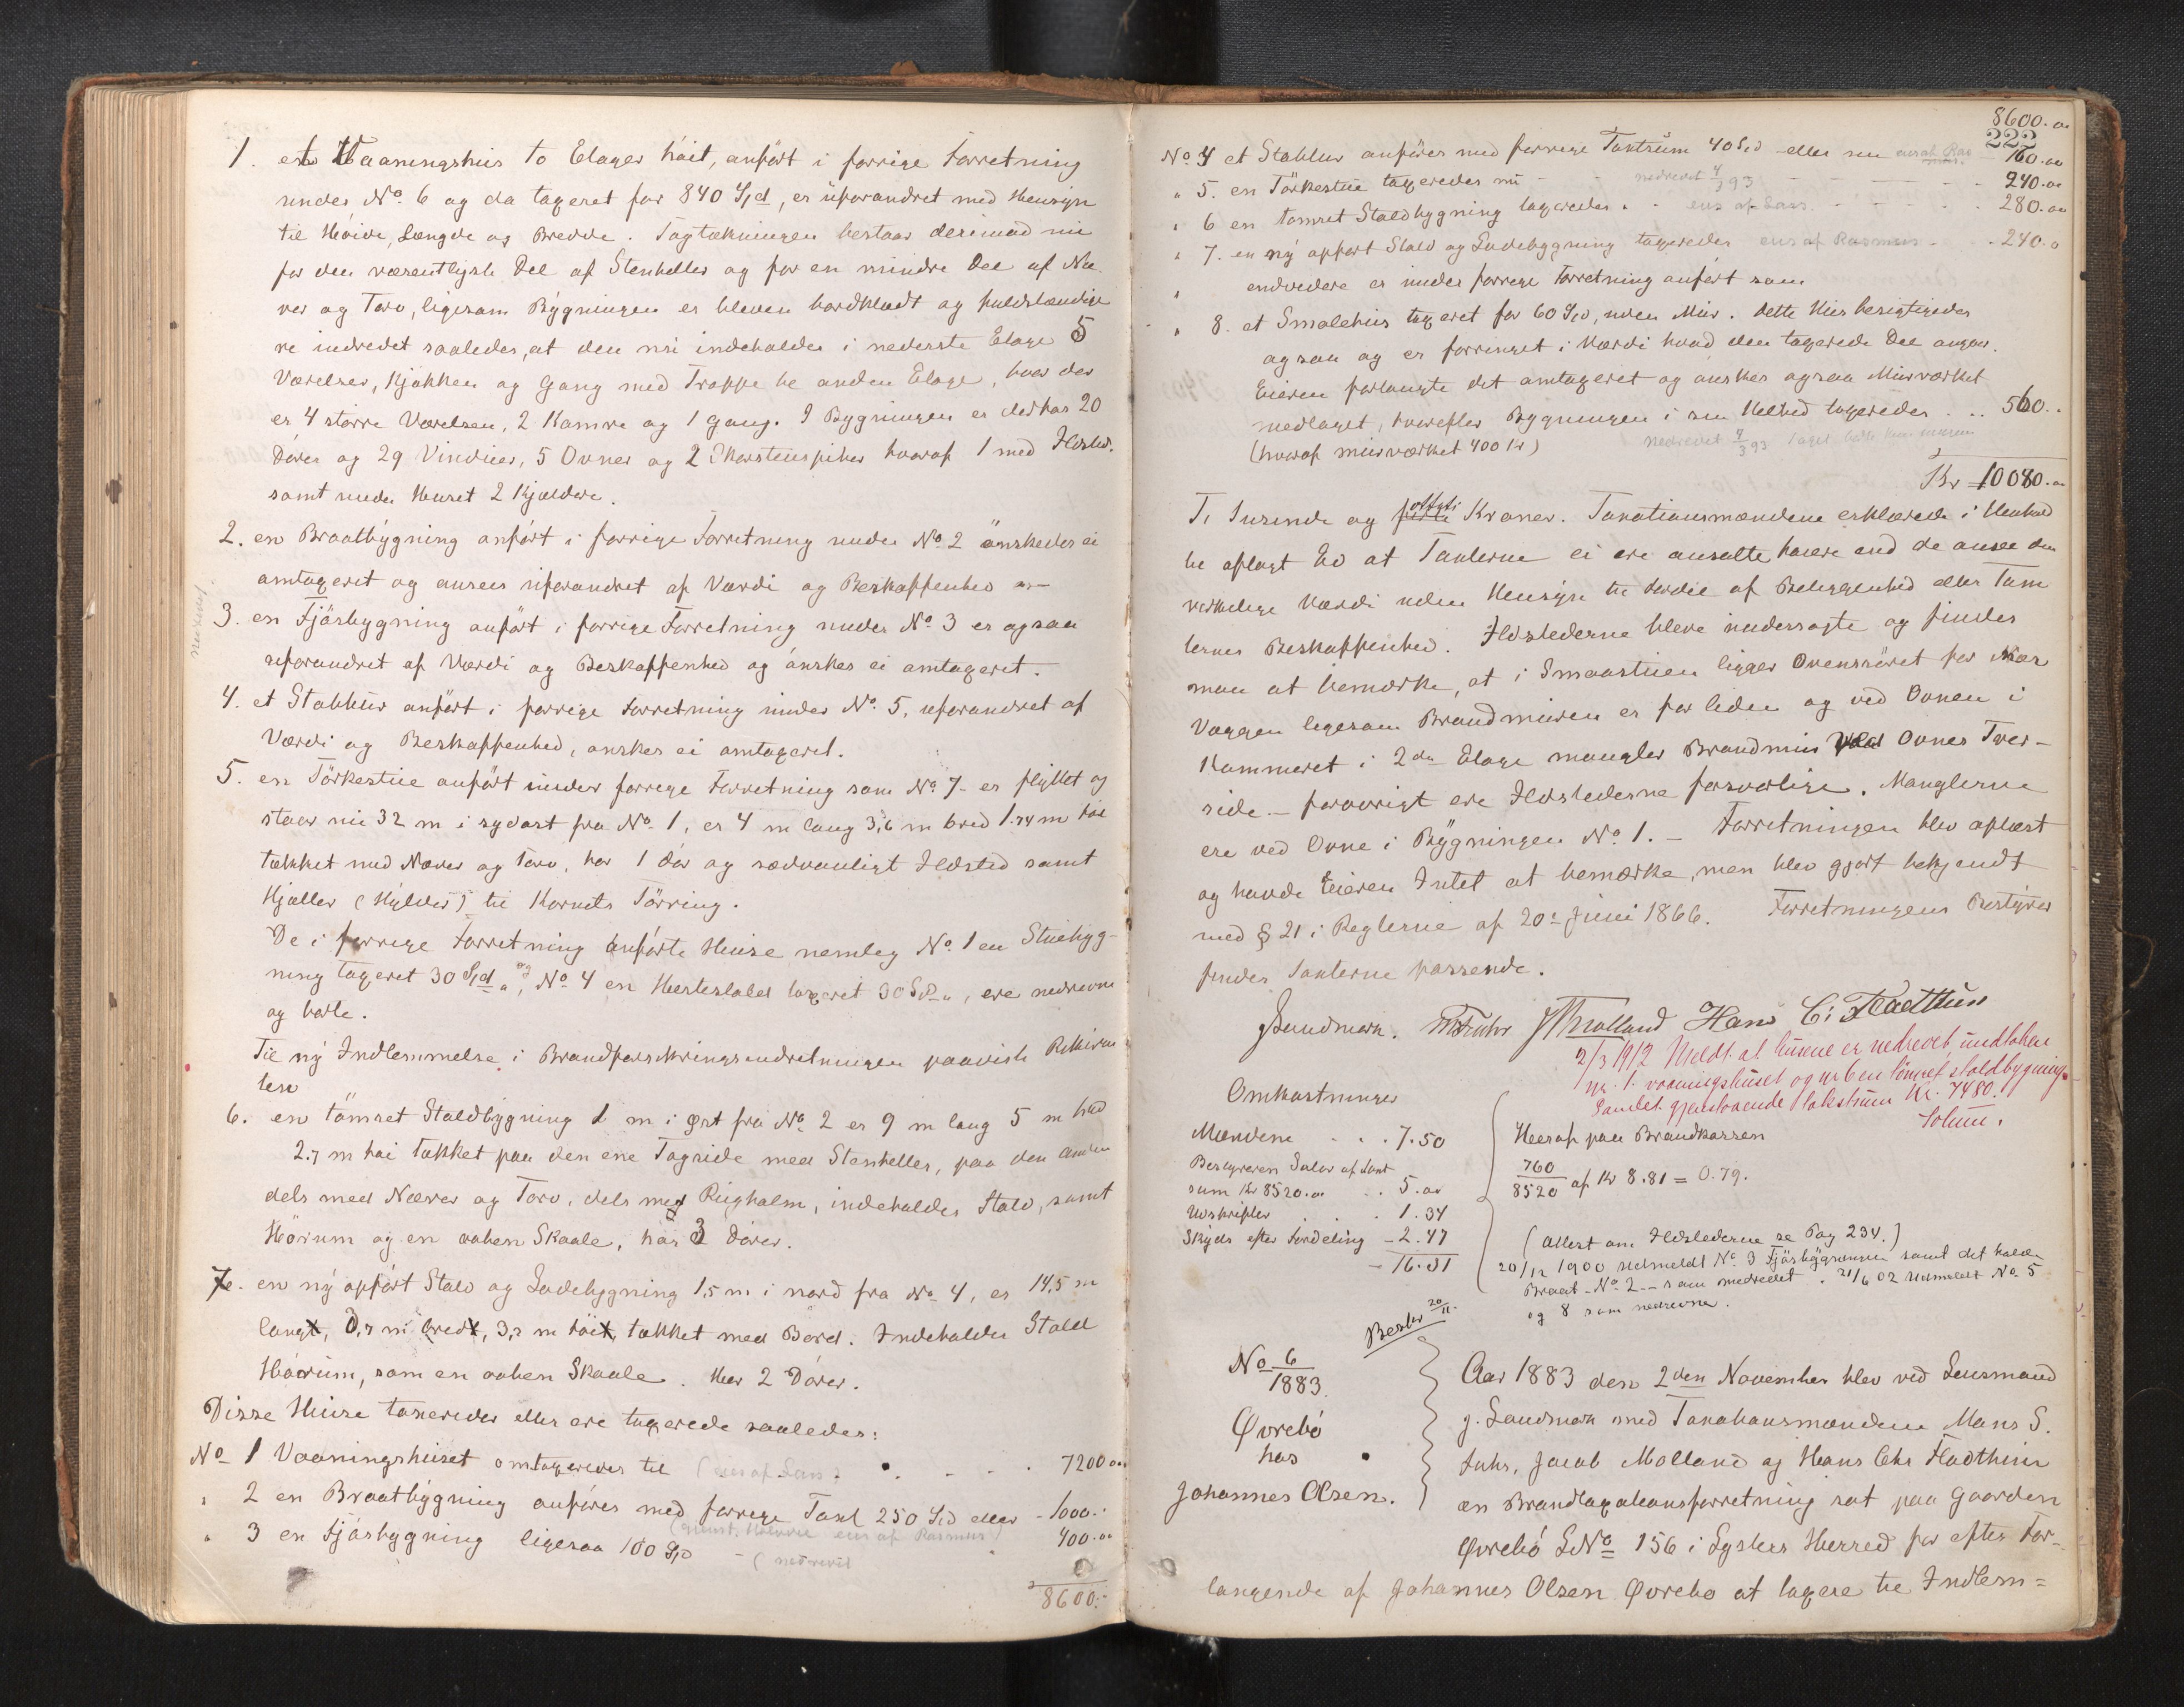 1. et Vaaningshus to Etager höit, anfört i forrige Forretning
under No. 6 og da taxeret for 840 Spd, er uforandret med Hensyn
til Höide, Længde og Bredde. Tagtækningen bestaar derimod nu
for den væsentligste Del af Stenheller og for en mindre Del af Næ
ver og Torv, ligesom Bygningen er bleven bordklædt og fuldstændige
re indredet saaledes, at den nu indeholder i nederste Etage 5
Værelser, Kjökken og Gang med Trappe til anden Etage, hvor der
er 4 större Værelser, 2 Kamre og 1 Gang. I Bygningen er derhos 20
Dörer og 29 Vinduer, 5 Ovner og 2 Skorstenspiber hvoraf 1 med Ildsted.
samt under Huset 2 Kjældere.
2. en Braatbygning anfört i forrige Forretning under No. 2 önskedes ei
omtaxeret og ansees uforandret af Værdi og Beskaffenhed
nedrevet
3. en Fjösbygning anfört i forrige Forretning under No. 3 er ogsaa
uforandret af Værdi og Beskaffenhed og önskes ei omtaxeret.
4. et Stabbur anfört i forrige Forretning under No. 5, uforandret af
Værdi og Beskaffenhed, önskes ei omtaxeret.
5. en Törkestue anfört under forrige Forretning som No. 7 - er flyttet og
staar nu 32 m i sydost fra No. 1, er 4 m lang 3,6 m bred 1.74 m höi
tækket med Næver og Torv, har 1 dör og sædvanligt Ildsted samt
Hjæller (Hylder) til Kornets Törring.
De i forrige Forretning anförte Huse nemlig No. 1 en Stuebyg-
ning taxeret 30 Spd og No. 4 en Hestestald taxeret 30 Spd, ere nedrevne
og borte.
Til ny Indlemmelse i Brandforsikringsindretningen paaviste Rekviren
ten
6. en tömret Staldbygning 1 m i öst fra No. 2 er 9 m lang 5 m bred
2.7 m höi tækket paa den ene Tagside med Stenheller, paa den anden
dels med Næver og Torv, dels med Rughalm, indeholder Stald, samt
Hörum og en aaben Skaale, har 3 Dörer.
7. en ny opfört Stald og Ladebygning 1,5 m i nord fra No. 4, er 14,5 m
langt, m bredt, 3,2 m höit, tækket med Bord. Indeholder Stald
Höirum, som en aaben Skaale. Har 2 Dörer.
Disse Huse taxeredes eller ere taxerede saaledes:
No 1 Vaaningshuset omtaxeredes til (eies af Lars) 7200.00
" 2 en Braatbygning anföres med forrige Taxt 250 Spd eller - 1000.-
" 3 en Fjösbygning ligesaa 100 Spd - (nedrevet 400.00
8600.-
8600.00
222
No. 4 et Stabbur anföres med forrige Taxtsum 40 Spd - eller 160.00
" 5. en Törkestue taxeredes nu - nedrevet 4/3 93 - 240.00
" 6 en tömret Staldbygning taxeredes eies af Lars - 280.00
" 7. en ny opfört Stald og Ladebygning taxeredes eies af Rasmus - 240.0
endvidere er under forrige Forretning anfört som
" 8. et Smalehus taxeret for 60 Spd, uden Mur. Dette Hus besigtigedes
ogsaa og er forringet i Værdi hvad den taxerede Del angaar.
Eieren forlangte det omtaxeret og önskes ogsaa Murværket
medtaget, hvorefter Bygningen i sin Helhed taxeredes .. 560..
(hvoraf murværket 400 Kr) nedrevet 4/3 93
Kr 10080.00
Ti Tusinde og otteti Kroner. Taxationsmændene erklærede i Henhold
til aflagt Ed at Taxterne ei ere ansatte höiere end de ansee den
virkelige Værdi uden Hensyn til Fordel af Beliggenhed eller Tom
ternes Beskaffenhed. Ildstederne bleve undersögte og findes
man at bemærke, at i Smaastuen ligger Ovensröret for nær
Væggen ligesom Brandmuren er for liden og ved Ovnen i
Kammeret i 2den Etage mangler Brandmur ved Ovnes Tver-
side. - forövrigt ere Ildstederne forsvarlige. Manglerne
ere ved Ovne i Bygningen No. 1. - Forretningen blev oplæst
og havde Eieren Intet at bemærke, men blev gjort bekjendt
med § 21 i Reglerne af 20de Juni 1866. Forretningens Bestyrer
findes Taxterne passende.
J Sandmark. M Fuhr J Molland Hans C: Flaethun
2/3 1912 Meldt at husene er nedrevet undtaken
nr. 1. vaaningshuset og nr 6 en tömret staldbygning.
Samlet gjenstaaende takstsum Kr. 7480.
Solum.
Omkostninger
Mændene . . . 7.50
Bestyreren Salær af Taxt
sum Kr 8520.00 . . 5.00
Udskrifter . 1.34
Skyds efter Fordeling - 2.47
- 16.31
Heraf paa Brandkassen
760/8520 af Kr 8.81 = 0.79.
(Attest om Ildstederne se Pag 234.)
20/12 1900 Udmeldt No. 3 Fjösbygningen samt det halve
Braat - No. 2 - som nedrevet. 21/6 02 Udmeldt No. 5
og 8 som nedrevne.
Besbr 20/11.
No 6/1883.
Øvrebö
hos
Johannes Olsen.
Aar 1883 den 2den November blev ved Lensmand
J. Sandmark med Taxationsmændene Mons S.
Fuhr, Jacob Molland og Hans Chr Fladthun
en Brandtaxationsforretning sat paa Gaarden
Øvrebö LNo 156 i Lysters Herred for efter For-
langende af Johannes Olsen Øvrebo at taxere til Indlem=